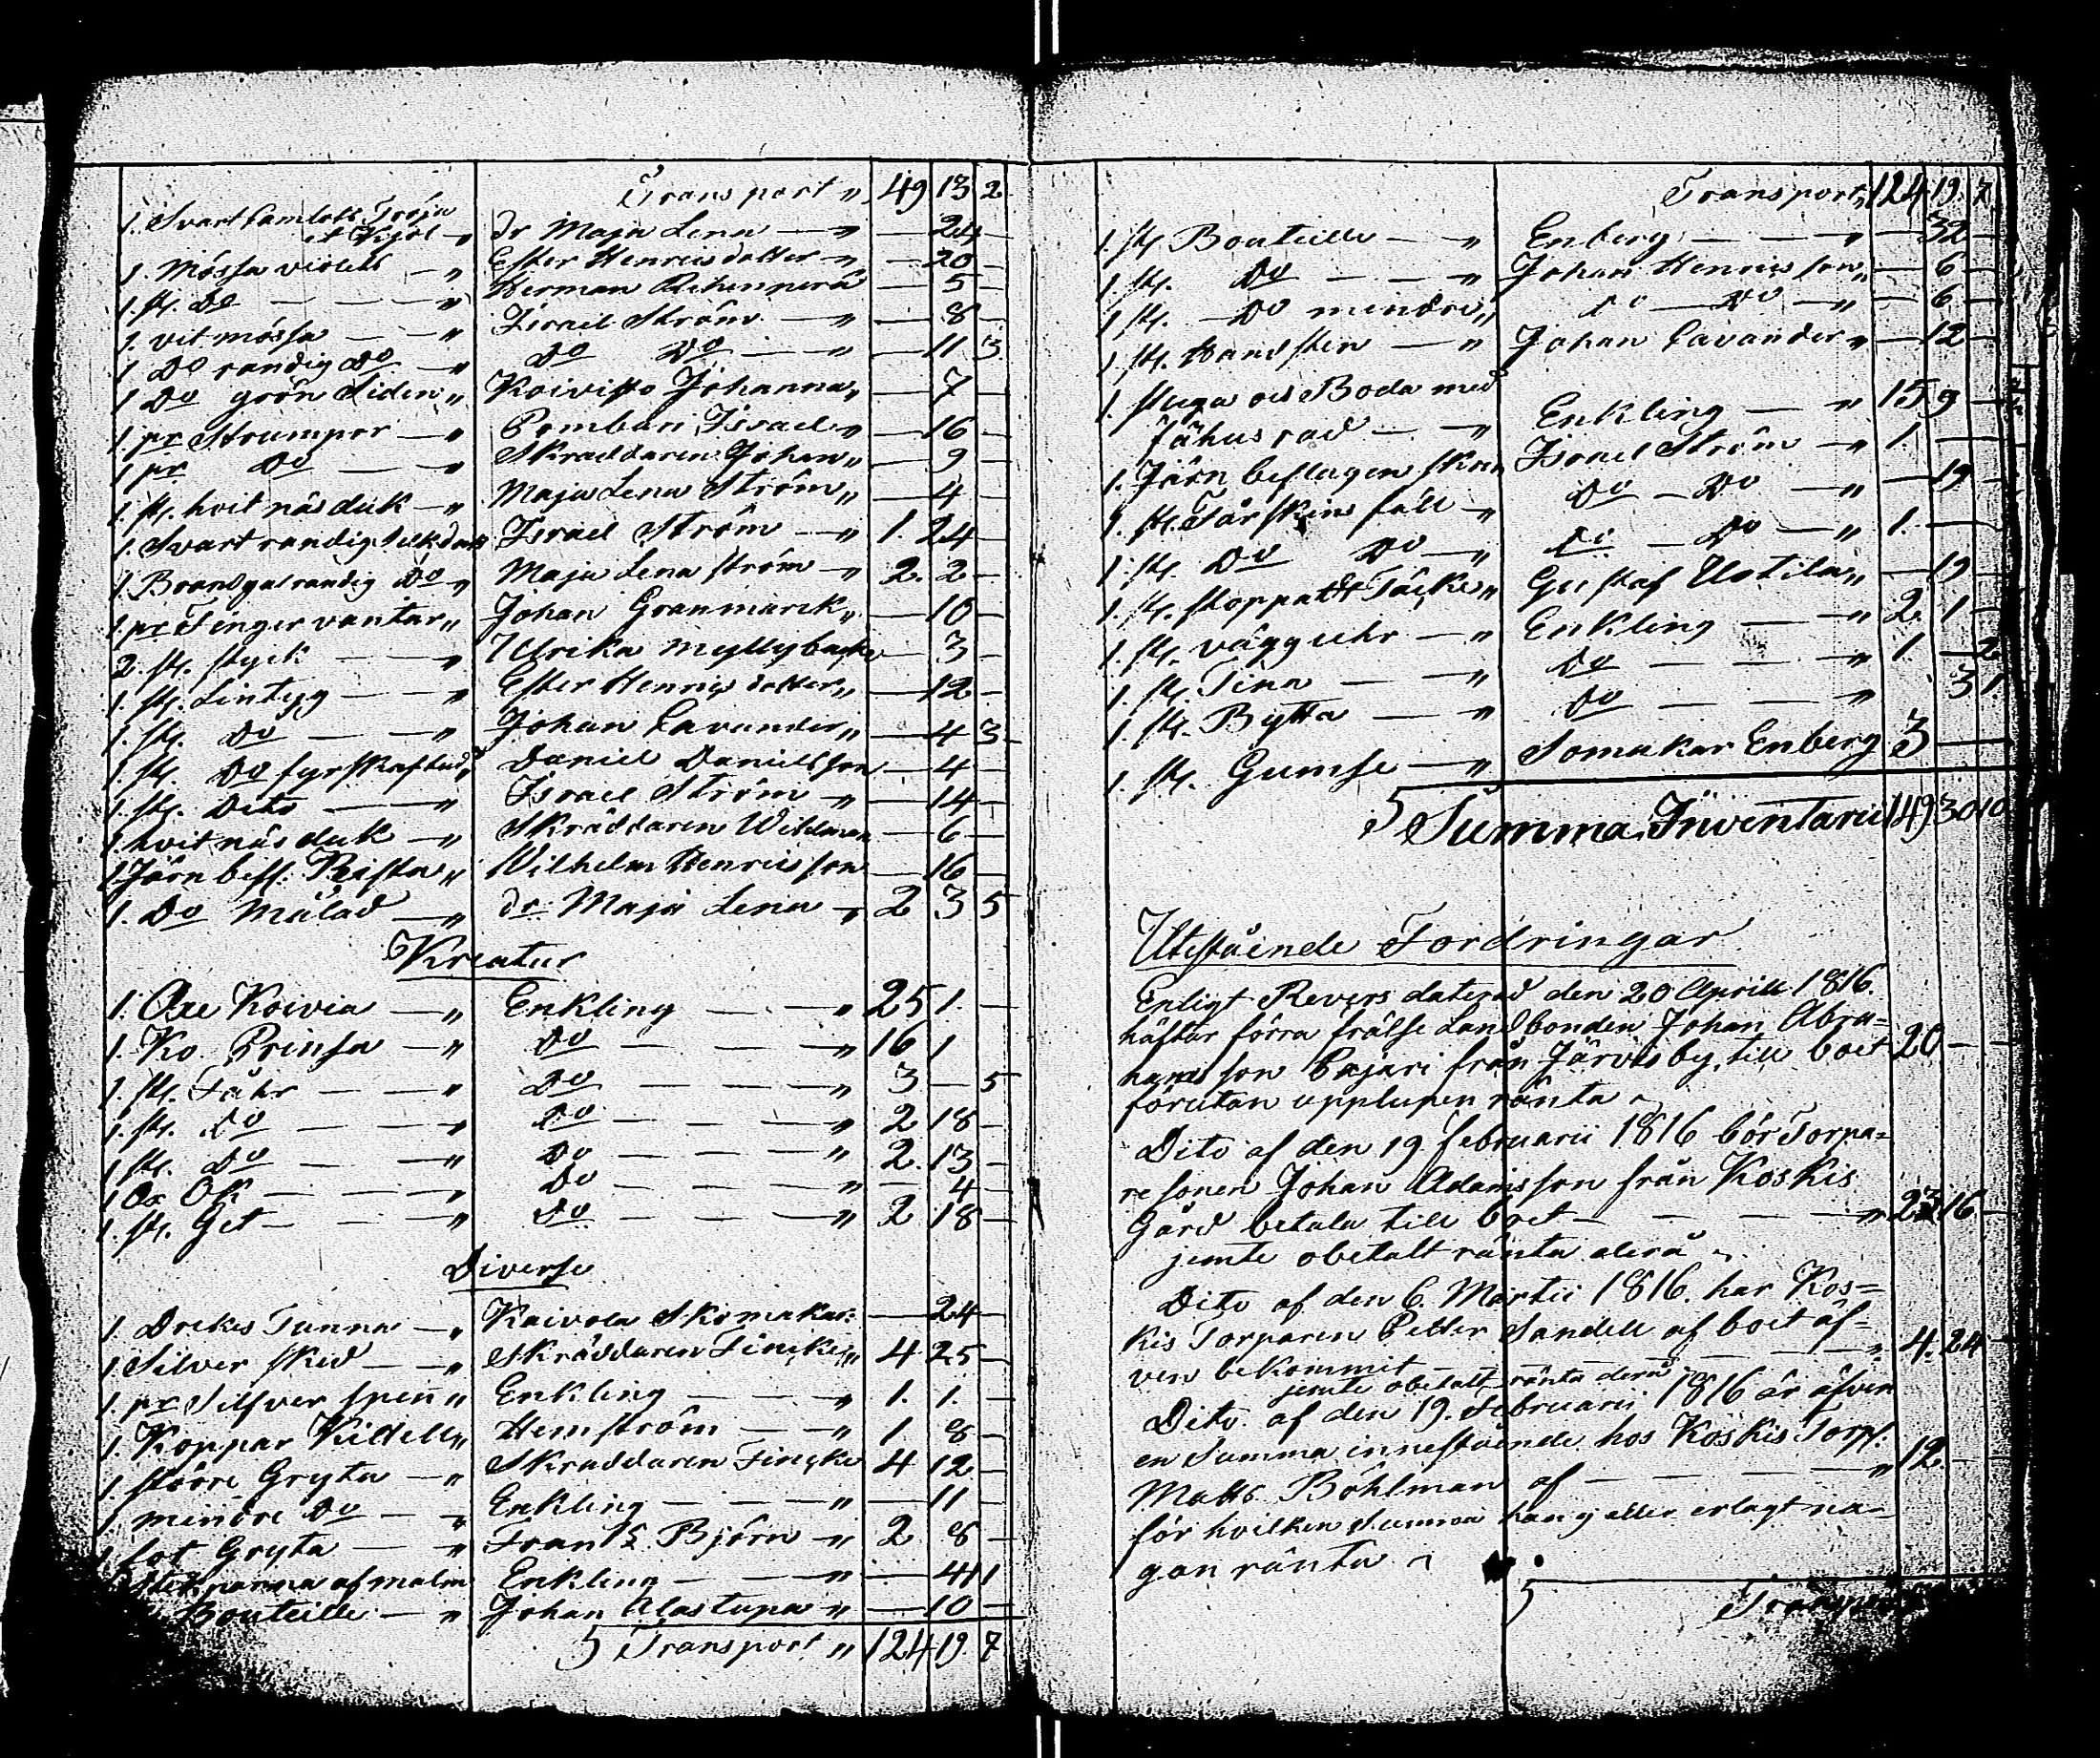 Transport „ 49 13 2
1. Svart Camlotts Tröja
et Kjol „ dr Maja Lena — „ — 24 —
1. Mössa violett — „ Ester Henricsdotter „ — 20 —
1. st. Do — — „ Herman — 5 —
1. vit mössa — „ Israel Ström — „ — 8 —
1 Do randig Do — „ Do Do — „ — 11 3
1 Do grön Siden „ Koivisto Johanna „ — 7 —
1. pr Strumpor — „ Pombari Israel „ — 16 —
1 pr Do — „ Skraeddaren Johan „ — 9 —
1. st. hvit näsduk — „ Maja Lena Ström „ — 4 —
1. Svart randig Silkduk Israel Ström — „ 1. 24 —
1. Brandgul randig Do „ Maja Lena Ström — „ 2. 2 —
1. pr Finger vantar „ Johan Granmarck „ — 10 —
2. st. styck — — „ Ulrika Myllybacka — 3 —
1. st. Lintyg — — „ Ester Henrics dotter „ — 12 —
1. st. Do — — „ Johan Cavander „ — 4 3 —
1. st. Do fyrskaftad „ Daniel Danielsson — 4 —
1. st. Dito — — „ Israel Ström — „ — 14 —
1 hvit näsduk — „ Skräddaren Wildman — 6 —
1 Järn besl. Kista „ Wilhelm Henricsson — 16 —
1. Do Målad — „ dr: Maja Lena — „ 2 3 5
Kreatur
1. Oxe Koivia — „ Enkling — — „ 25 1. —
1. Ko Prinsa — „ Do — — — „ 16 1
1. st. Fåhr — — „ Do — — — „ 3 — 5
1. st. Do — — — „ Do — — — „ 2 18 —
1 st. Do — — „ Do — — — „ 2. 13 —
1 Ox Ok — — — „ Do — — — „ — 4 —
1. st. Get — — — „ Do — — — „ 2 18 —
Diverse
1. Drickes Tunna — „ Kaivola Skomakar: — 24 —
1 Silver Sked — — „ Skräddaren Fincke „ 4 25 —
1. pr Silfver spenn „ Enkling — — — „ 1. 1. —
1. Koppar Kittell „ Hemström — — „ 1 8 —
1 större Gryta — „ Skräddaren Fincke 4 12 —
1 mindre Do — — „ Enkling — — — „ — 11 —
1 fot Gryta — — „ Frantz Björn — „ 2 8 —
stekpanna af malm Enkling — — — „ — 4 11
Bouteille — „ Johan Alastupa „ — 10 —
5 Transport „ 124 19. 7
Transport „ 124 19. 7
1. st. Bouteille — — „ Enberg — — — „ — 32 —
1 st. Do — — — „ Johan Henricsson „ — 6 —
1 st. — Do mindre „ Do — Do — „ — 6 —
1 st. Handsten — „ Johan Cavander „ — 12 —
1. stuga och Boda med
fähus rad — — „ Enkling — „ 15 9 —
1. Järn beslagen skrin Israel Ström — „ 1. — —
1 st. Fårskins fäll — „ Do — Do — „ — 19 —
1 st. Do Do — „ Do — Do — „ 1. — —
1. st. stoppatt Täcke „ Gustaf Uotila „ — 19 —
1. st. vägguhr — „ Enkling — — „ 2 1 —
1. st. Tina — — „ Do — — — „ 1 — 2
1. st. Bytta — — „ Do — — — „ 3 1
1. st. Gumse — „ Somakar Enberg 3 — —
5 Summa Inventarii 149 30 10
Utestående Fordringar
Enligt Revers daterad den 20 Aprill 1816.
häftar förra frälse Landbonden Johan Abra=
hamsson Pajari från Järvis by, till boet 20 — —
förutan upplupen ränta
Dito af den 19 februarii 1816 bör Torpa=
re sonen Johan Adamsson från Koskis
Gård betala till boet — — — — „ 23 16 —
jemte obetalt ränta derå
Dito af den 6. Martii 1816. har Kos=
kis Torparen Petter Sandell af boet äf=
ven bekommit — — — — „ 4. 24 —
jemte obetalt ränta derå
Dito af den 19. Februarii 1816 är äfven
en Summa innestående hos Koskis Torp.
Matts Böhlman af — — — — „ 12 — —
för hvilken Summa han ej eller erlagt nå=
gon ränta
5 Transport